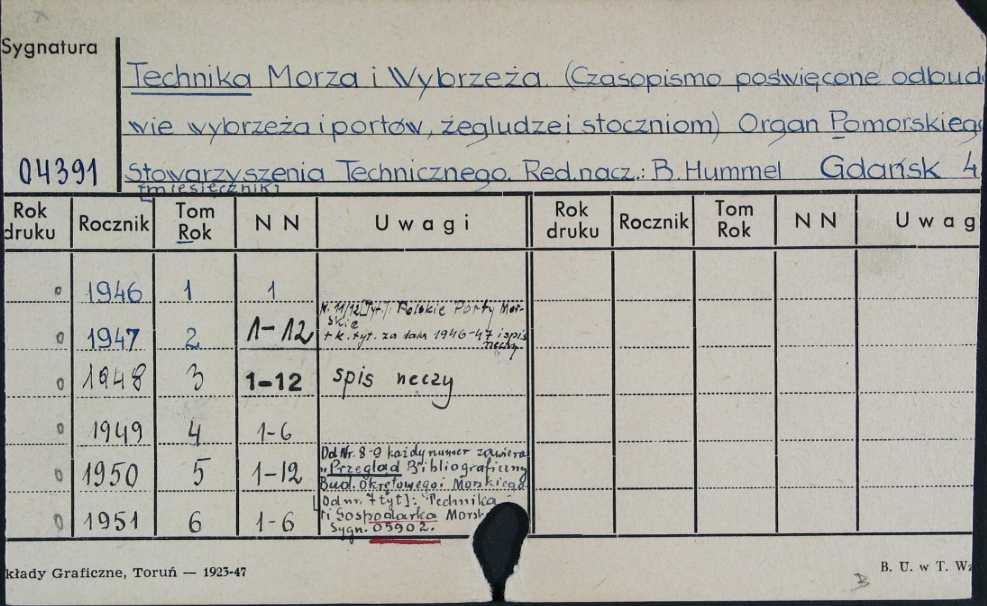 Sygnatura
Technika Morza i Wybrzeża. (Czasopismo poświęcone odbudo
wie wybrzeża i portów, żegludze i stoczniom) Organ Pomorskiego
04391 Stowarzyszenia Technicznego. Red.nacz.: B. Hummel Gdańsk 4
[miesięcznik]
Rok druku Rocznik Tom Rok N N Uwagi Rok druku Rocznik Tom Rok N N Uwag
0 1946 1 1
Nr 11/12 [Tyt.]: Polskie Porty Mor-
skie
0 1947 2 1-12 + k. tyt. za dam 1946-47 i spis
rzeczy
0 1948 3 1-12 spis rzeczy
0 1949 4 1-6
Od Nr. 8-9 każdy numer zawiera
0 1950 5 1-12 "Przegląd Bibliograficzny
Bud. Okrętowego i Morskiego
[Od nr. 7 tyt]: Technika
0 1951 6 1-6 i Gospodarka Morsk
sygn. 05902.
kłady Graficzne, Toruń — 1923-47
B. U. w T. Wz
B